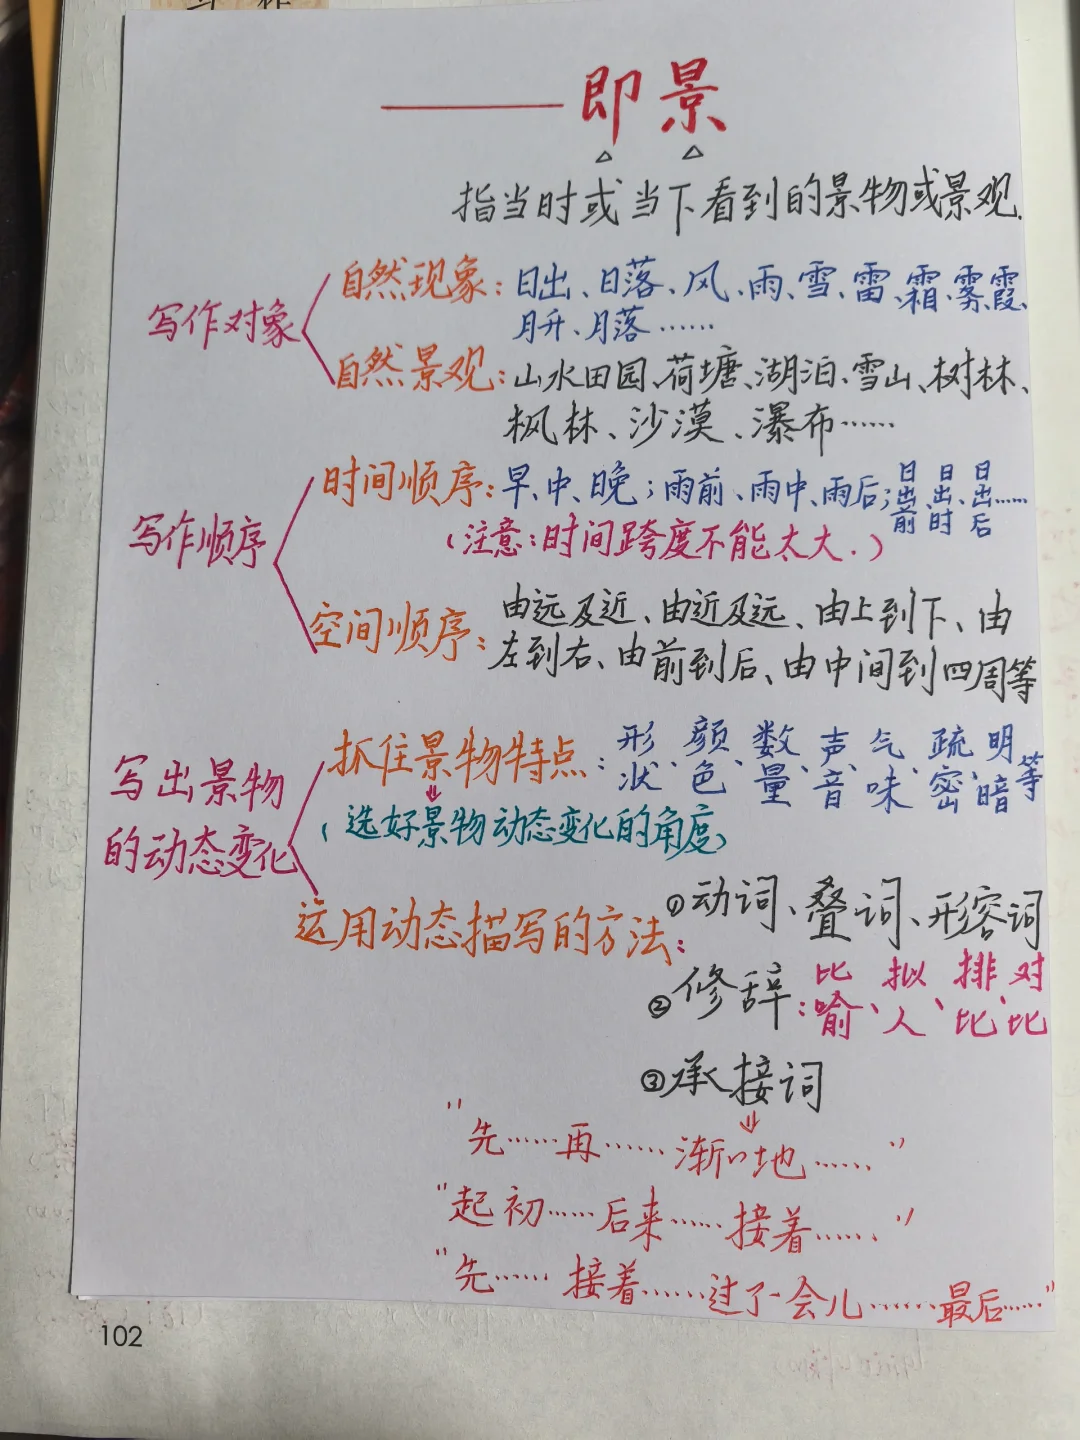 ——即景
指当时或当下看到的景物或景观.
写作对象
自然现象：日出、日落、风、雨、雪、雷、霜、雾、霞、
月升、月落……
自然景观：山水田园、荷塘、湖泊、雪山、树林、
枫林、沙漠、瀑布……
写作顺序
时间顺序：早、中、晚；雨前、雨中、雨后；日出前、日出时、日出后……
（注意：时间跨度不能太大.）
空间顺序：由远及近、由近及远、由上到下、由
左到右、由前到后、由中间到四周等
写出景物
的动态变化
抓住景物特点：形状、颜色、数量、声音、气味、疏密、明暗等
（选好景物动态变化的角度）
运用动态描写的方法：
①动词、叠词、形容词
②修辞：比喻、拟人、排比、对比
③承接词
“先……再……渐渐地……”
“起初……后来……接着……”
“先……接着……过了一会儿……最后……”
102